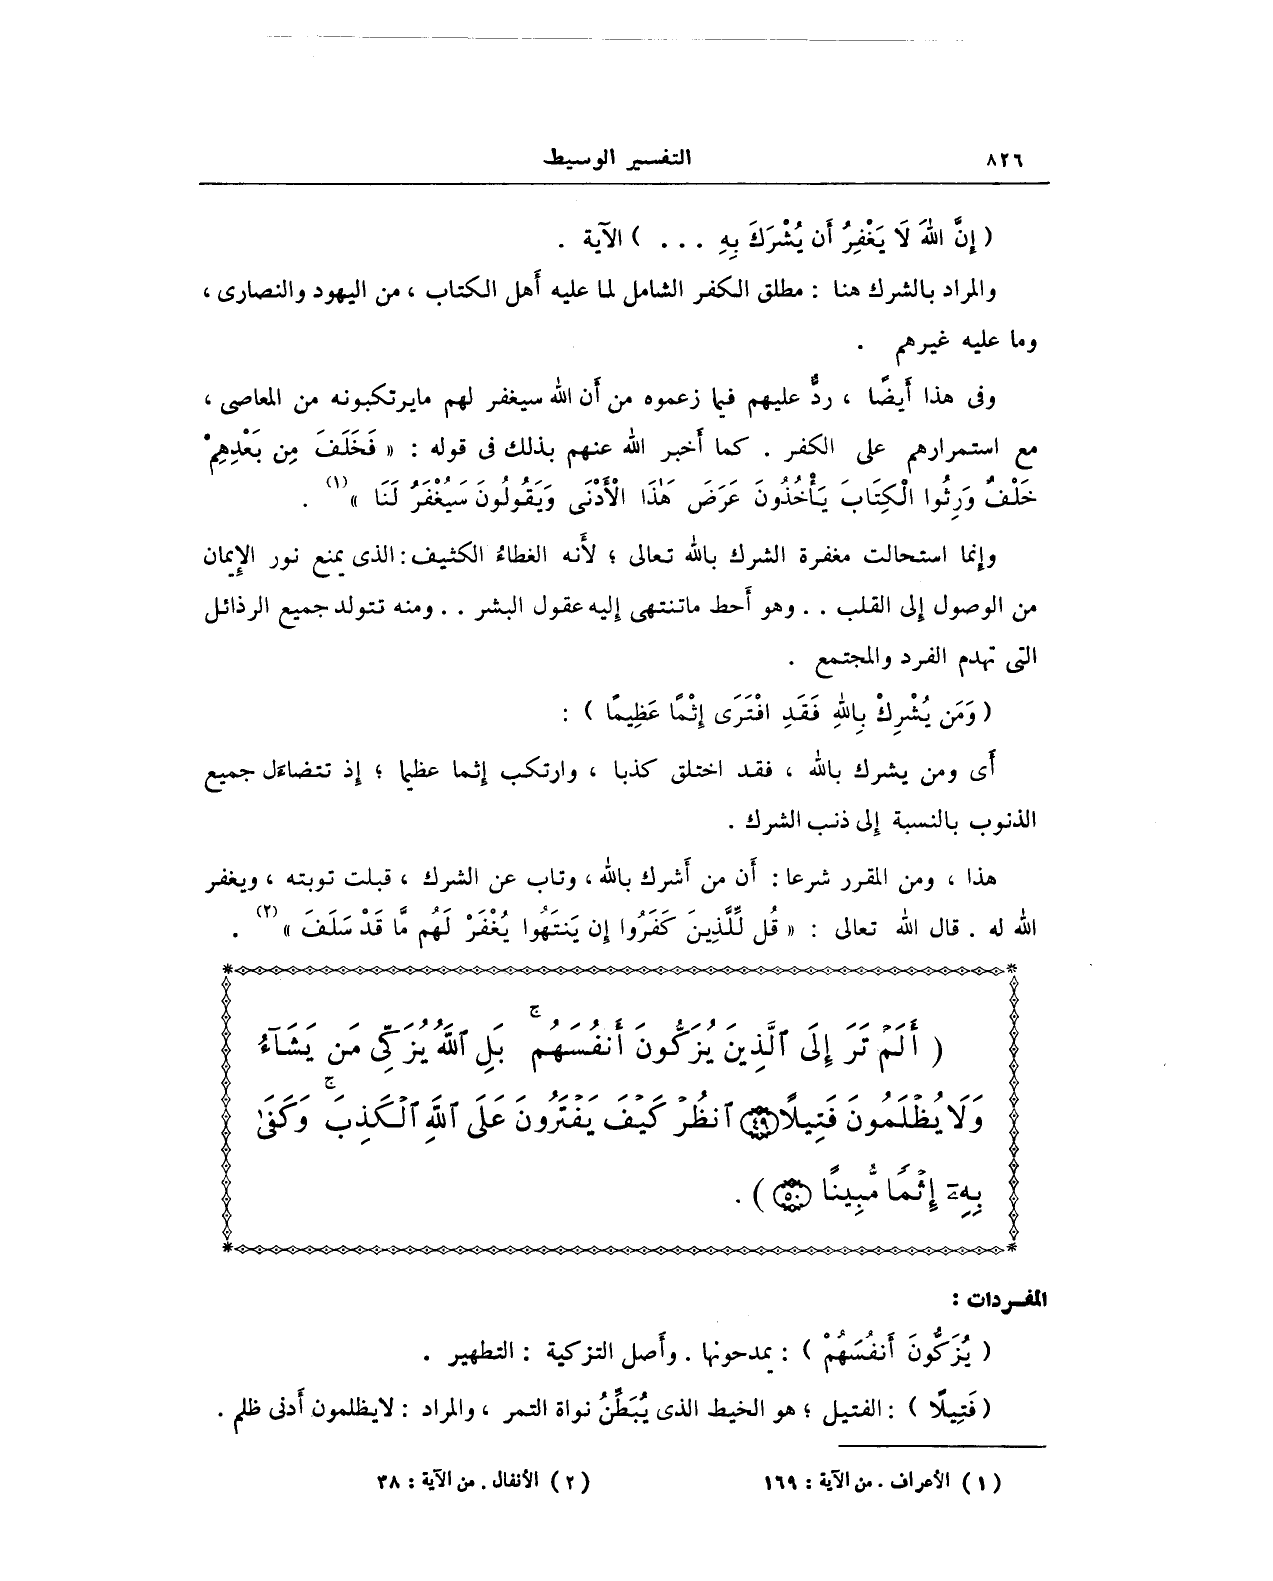 ٨٢٦
التفسير الوسيط
( إِنَّ اللهَ لَا يَغْفِرُ أَن يُشْرَكَ بِهِ . . . ) الآية .
والمراد بالشرك هنا : مطلق الكفر الشامل لما عليه أهل الكتاب ، من اليهود والنصارى ،
وما عليه غيرهم .
وفى هذا أَيضًا ، ردٌّ عليهم فيما زعموه من أَن الله سيغفر لهم مايرتكبونه من المعاصى ،
مع استمرارهم على الكفر . كما أَخبر الله عنهم بذلك فى قوله : « فَخَلَفَ مِن بَعْدِهِمْ
خَلْفٌ وَرِثُوا الْكِتَابَ يَأْخُذُونَ عَرَضَ هَٰذَا الْأَدْنَى وَيَقُولُونَ سَيُغْفَرُ لَنَا » (١) .
وإِنما استحالت مغفرة الشرك بالله تعالى ؛ لأَنه الغطاءُ الكثيف : الذى يمنع نور الإِيمان
من الوصول إِلى القلب . . وهو أَحط ماتنتهى إِليه عقول البشر . . ومنه تتولد جميع الرذائل
التى تهدم الفرد والمجتمع .
( وَمَن يُشْرِكْ بِاللهِ فَقَدِ افْتَرَى إِثْمًا عَظِيمًا ) :
أَى ومن يشرك بالله ، فقد اختلق كذبا ، وارتكب إِثما عظيما ؛ إِذ تتضاءَل جميع
الذنوب بالنسبة إِلى ذنب الشرك .
هذا ، ومن المقرر شرعا : أَن من أَشرك بالله ، وتاب عن الشرك ، قبلت توبته ، ويغفر
الله له . قال الله تعالى : « قُل لِّلَّذِينَ كَفَرُوا إِن يَنتَهُوا يُغْفَرْ لَهُم مَّا قَدْ سَلَفَ » (٢) .
( أَلَمْ تَرَ إِلَى ٱلَّذِينَ يُزَكُّونَ أَنفُسَهُم ۚ بَلِ ٱللَّهُ يُزَكِّى مَن يَشَآءُ
وَلَا يُظْلَمُونَ فَتِيلًا ٤٩ ٱنظُرْ كَيْفَ يَفْتَرُونَ عَلَى ٱللَّهِ ٱلْكَذِبَ ۚ وَكَفَىٰ
بِهِۦٓ إِثْمًا مُّبِينًا ٥٠ ) .
المفـردات :
( يُزَكُّونَ أَنفُسَهُمْ ) : يمدحونها . وأَصل التزكية : التطهير .
( فَتِيلًا ) : الفتيل ؛ هو الخيط الذى يُبَطِّنُ نواة التمر ، والمراد : لايظلمون أَدنى ظلم .
( ١ ) الأعراف . من الآية : ١٦٩
( ٢ ) الأنفال . من الآية : ٣٨